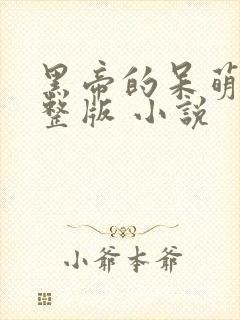 黑帝的呆萌
整版 小說
小爺本爺